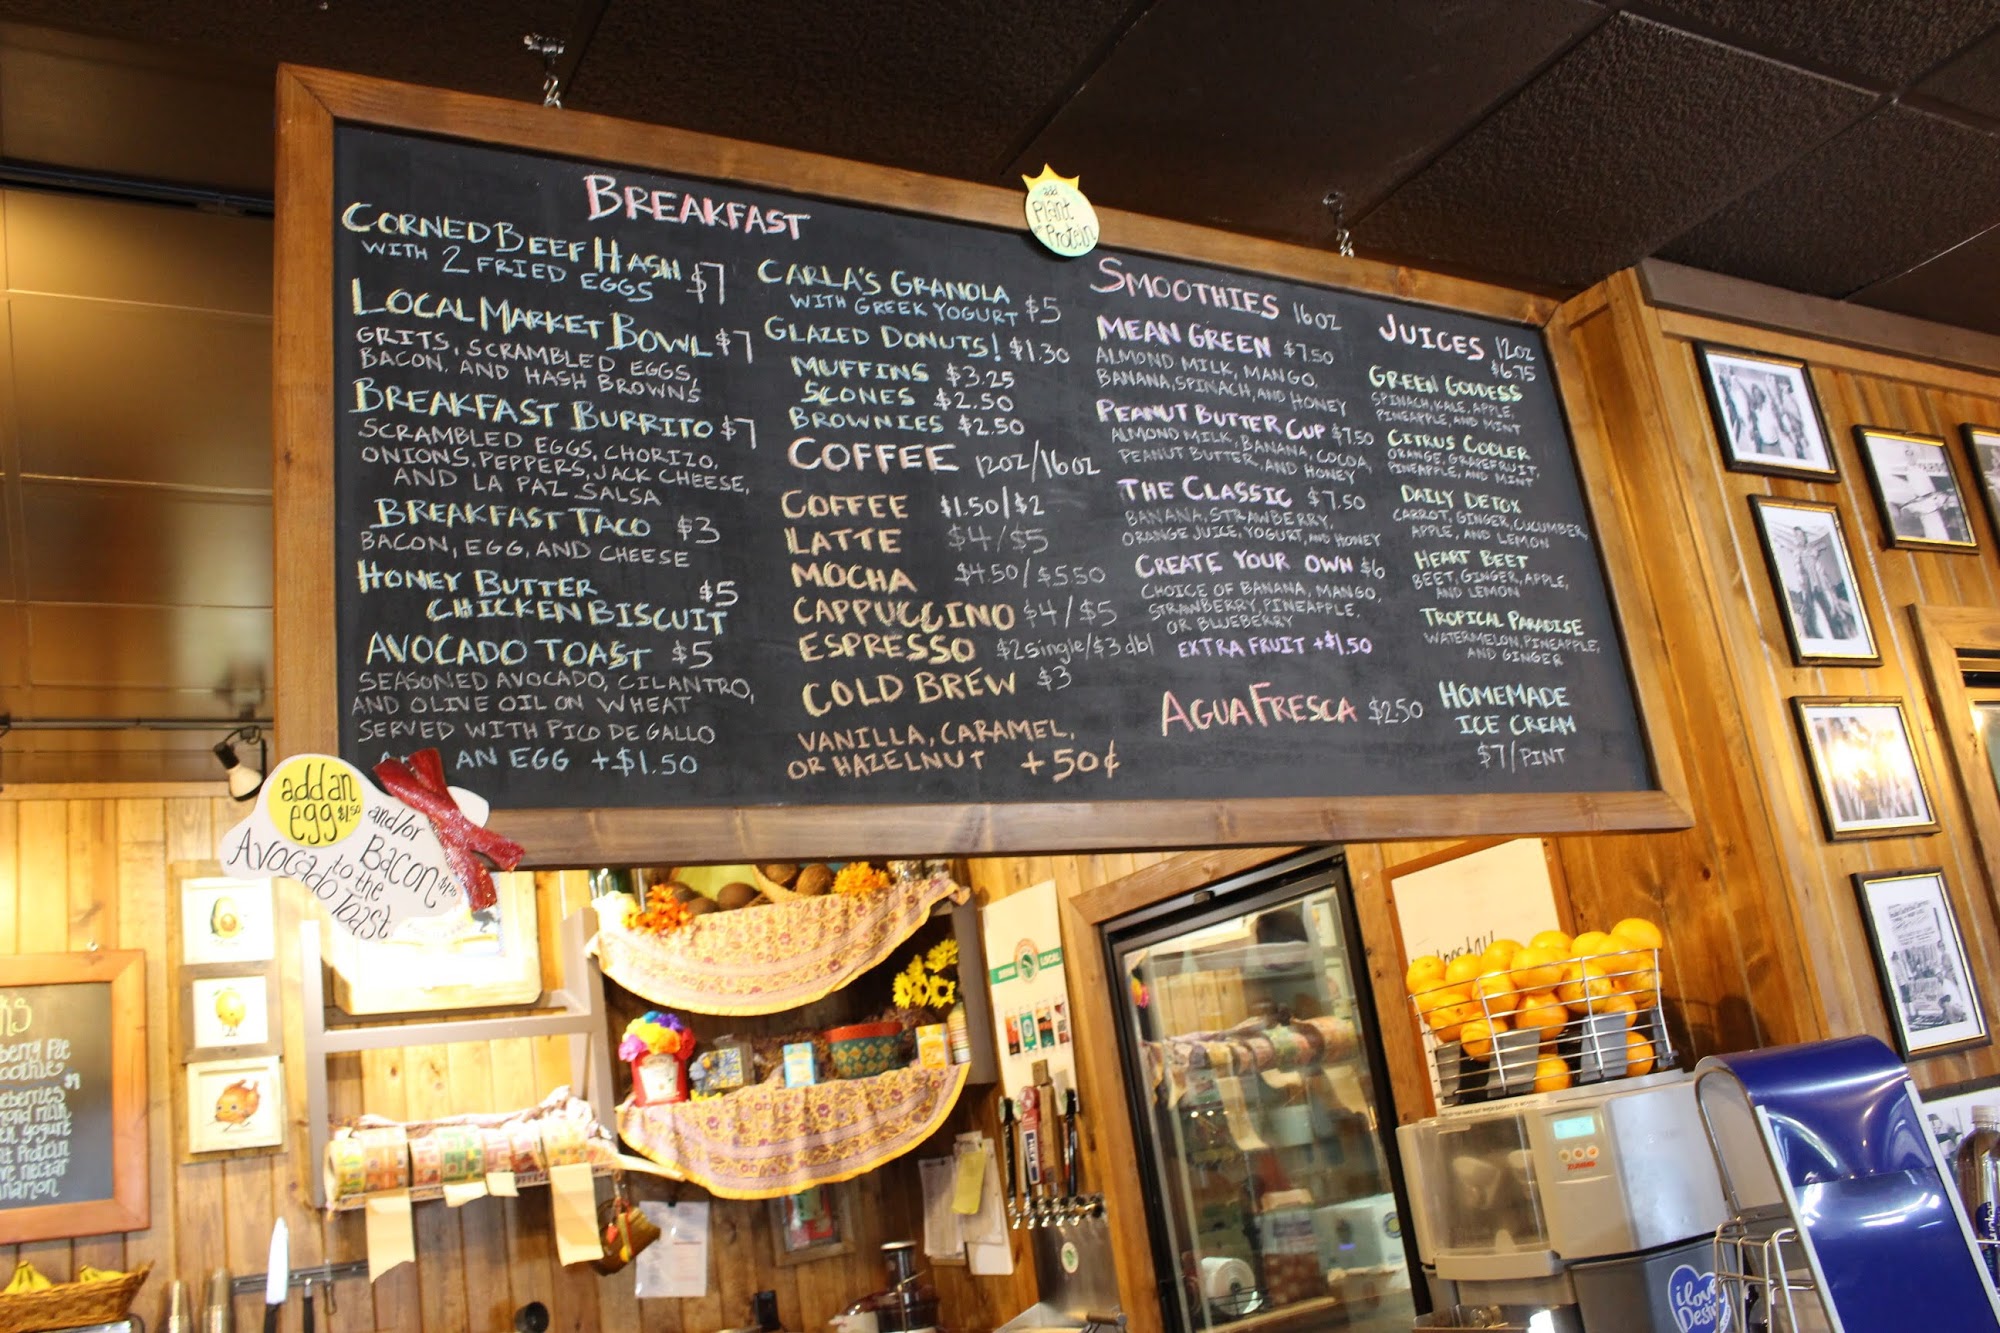 BREAKFAST
CORNED BEEF HASH
WITH 2 FRIED EGGS $7
LOCAL MARKET BOWL $7
GRITS, SCRAMBLED EGGS,
BACON, AND HASH BROWNS
BREAKFAST BURRITO $7
SCRAMBLED EGGS, CHORIZO,
ONIONS, PEPPERS, JACK CHEESE,
AND LA PAZ SALSA
BREAKFAST TACO $3
BACON, EGG, AND CHEESE
HONEY BUTTER $5
CHICKEN BISCUIT
AVOCADO TOAST $5
SEASONED AVOCADO, CILANTRO,
AND OLIVE OIL ON WHEAT
SERVED WITH PICO DE GALLO
AN EGG +$1.50
add an
egg $1.50
and/or
Bacon
to the
Avocado Toast
CARLA'S GRANOLA
WITH GREEK YOGURT $5
GLAZED DONUTS! $1.30
MUFFINS $3.25
SCONES $2.50
BROWNIES $2.50
COFFEE 12OZ/16OZ
COFFEE $1.50/$2
LATTE $4/$5
MOCHA $4.50/$5.50
CAPPUCCINO $4/$5
ESPRESSO $2single/$3dbl
COLD BREW $3
VANILLA, CARAMEL,
OR HAZELNUT +50¢
add
Plant
Protein
SMOOTHIES 16OZ
MEAN GREEN $7.50
ALMOND MILK, MANGO,
BANANA, SPINACH, AND HONEY
PEANUT BUTTER CUP $7.50
ALMOND MILK, BANANA, COCOA,
PEANUT BUTTER, AND HONEY
THE CLASSIC $7.50
BANANA, STRAWBERRY,
ORANGE JUICE, YOGURT, AND HONEY
CREATE YOUR OWN $6
CHOICE OF BANANA, MANGO,
STRAWBERRY, PINEAPPLE,
OR BLUEBERRY
EXTRA FRUIT +$1.50
AGUA FRESCA $2.50
JUICES 12OZ
$6.75
GREEN GODDESS
SPINACH, KALE, APPLE,
PINEAPPLE, AND MINT
CITRUS COOLER
ORANGE, GRAPEFRUIT,
PINEAPPLE, AND MINT
DAILY DETOX
CARROT, GINGER, CUCUMBER,
APPLE, AND LEMON
HEART BEET
BEET, GINGER, APPLE,
AND LEMON
TROPICAL PARADISE
WATERMELON, PINEAPPLE,
AND GINGER
HOMEMADE
ICE CREAM
$7/PINT
DRINK LOCAL
ZUMMO
i love